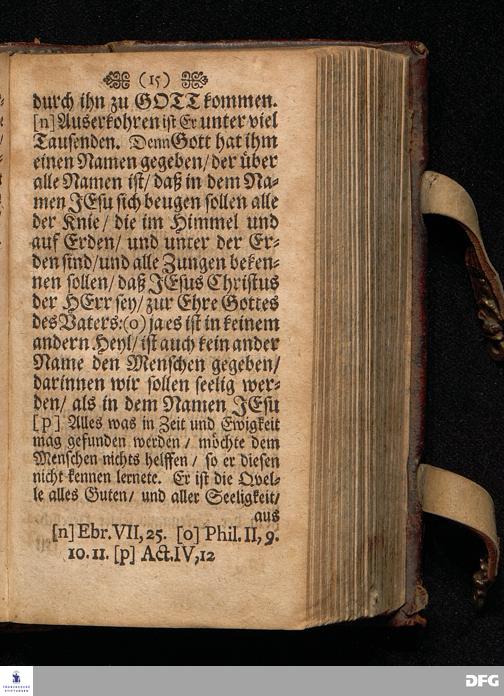 (15)
durch ihn zu GOTT kommen.
[n] Auserkohren ist Er unter viel
Tausenden. Denn Gott hat ihm
einen Namen gegeben/ der über
alle Namen ist/ daß in dem Na-
men JEsu sich beugen sollen alle
der Knie/ die im Himmel und
auf Erden/ und unter der Er-
den sind/ und alle Zungen beken-
nen sollen/ daß JEsus Christus
der HErr sey/ zur Ehre Gottes
des Vaters: (o) ja es ist in keinem
andern Heyl/ ist auch kein ander
Name den Menschen gegeben/
darinnen wir sollen seelig wer-
den/ als in dem Namen JEsu
[p] Alles was in Zeit und Ewigkeit
mag gefunden werden / möchte dem
Menschen nichts helffen/ so er diesen
nicht kennen lernete. Er ist die Qvel-
le alles Guten/ und aller Seeligkeit/
aus
[n] Ebr. VII, 25. [o] Phil. II, 9.
10. 11. [p] Act. IV, 12
FRANCKESCHE
STIFTUNGEN
DFG